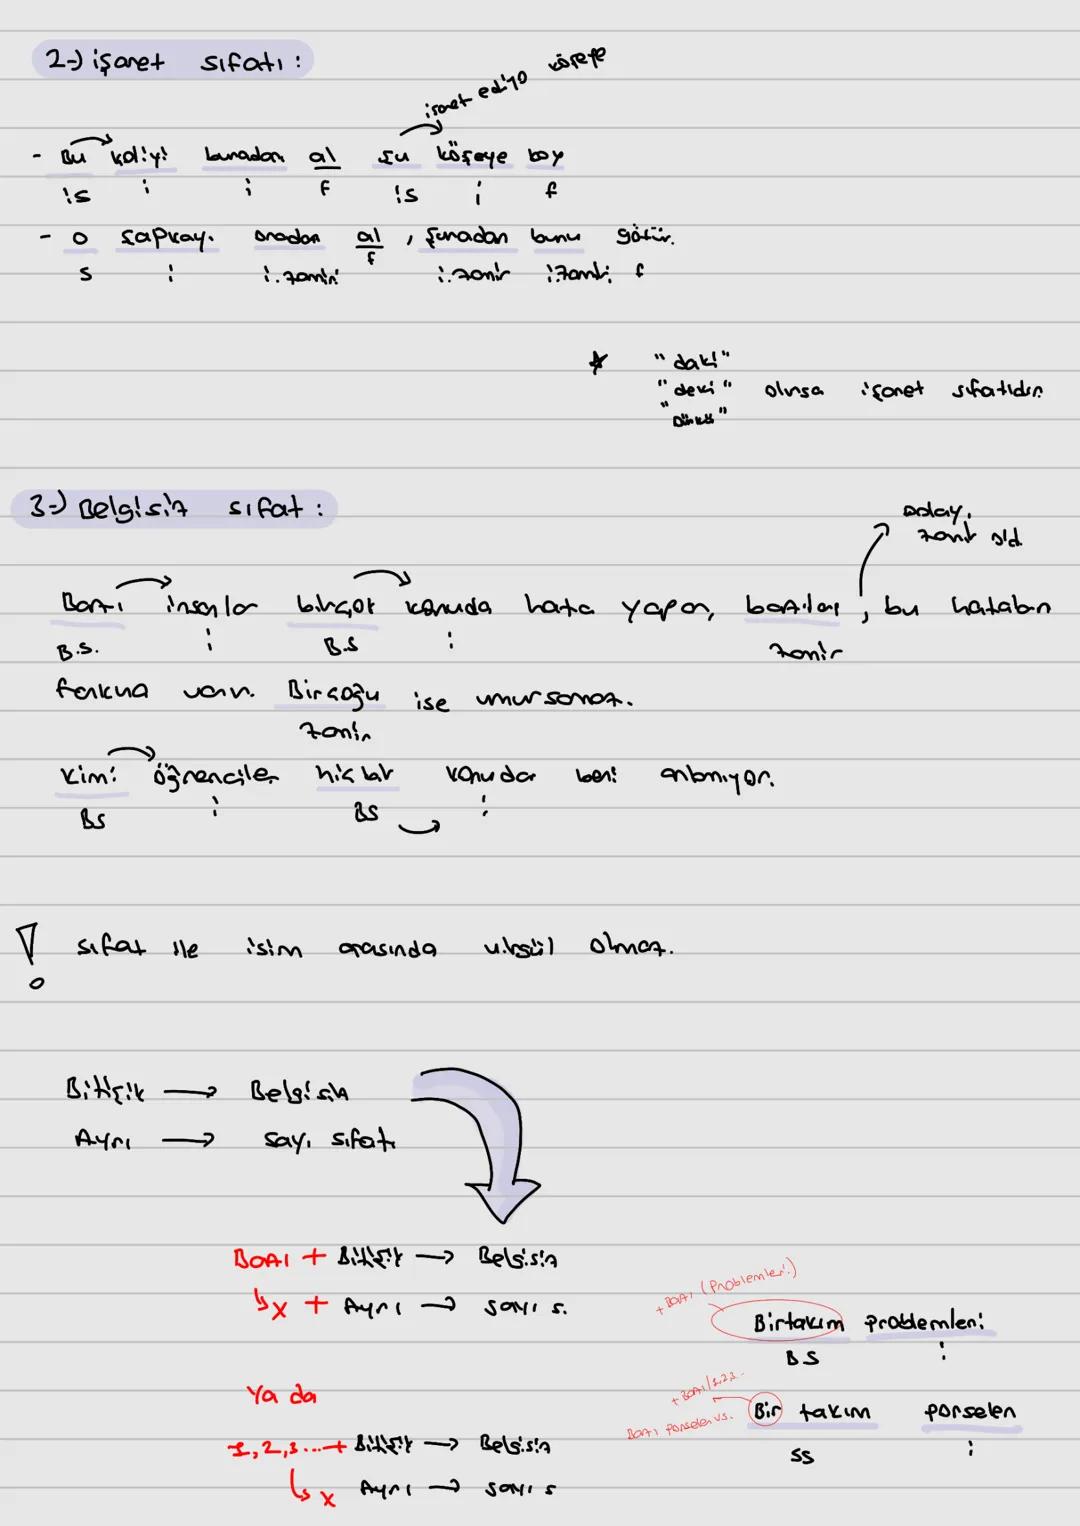 2-) işaret sıfatı :
işaret ediyo köşeye
- Bu koliyi buradan al şu köşeye koy
İS i i f İS i f
- o şapkayı oradan al , şuradan bunu götür.
S i i.zamiri f i.zamir i.zamiri f
* "daki"
"deki" olursa işaret sıfatıdır.
"Dünkü"
3-) Belgisiz sıfat :
zamir old.
Bazı insanlar birçok konuda hata yapar, bazıları , bu hataların
B.S. i B.S i zamir
farkına varır. Birçoğu ise umursamaz.
zamir
kimi öğrenciler hiç bir konuda beni anlamıyor.
BS i BS i
! sıfat ile isim arasında virgül olmaz.
Bitişik → Belgisiz
Ayrı → sayı sıfatı
BAZI + Bitişik → Belgisiz
↳ x + Ayrı → sayı s.
+ BAZI (Problemleri)
Birtakım problemleri
BS i
Ya da
+ BAZI/1,2,3..
Bazı Porselen vs. Bir takım porselen
SS i
1,2,3...+ Bitişik → Belgisiz
↳ x Ayrı → sayı s